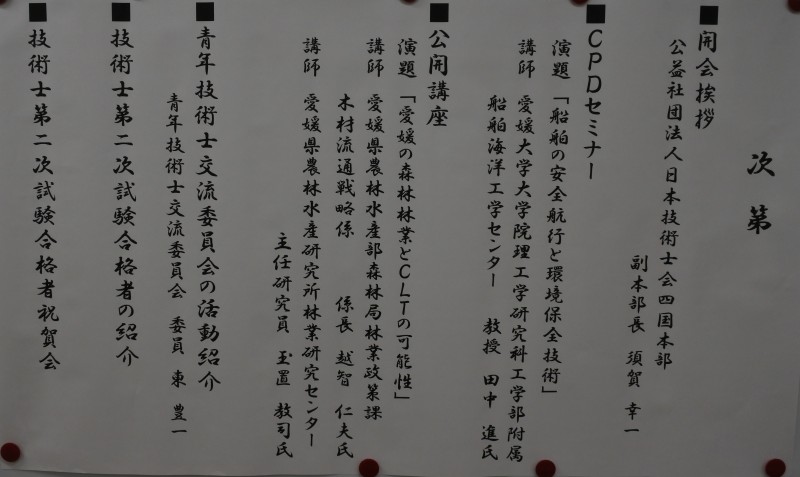 次第
■開会挨拶
公益社団法人日本技術士会四国本部
副本部長 須賀 幸一
■CPDセミナー
演題「船舶の安全航行と環境保全技術」
講師 愛媛大学大学院理工学研究科工学部附属
船舶海洋工学センター 教授 田中 進氏
■公開講座
演題「愛媛の森林林業とCLTの可能性」
講師 愛媛県農林水産部森林局林業政策課
木材流通戦略係 係長 越智 仁夫氏
講師 愛媛県農林水産研究所林業研究センター
主任研究員 玉置 教司氏
■青年技術士交流委員会の活動紹介
青年技術士交流委員会 委員 東 豊一
■技術士第二次試験合格者の紹介
■技術士第二次試験合格者祝賀会